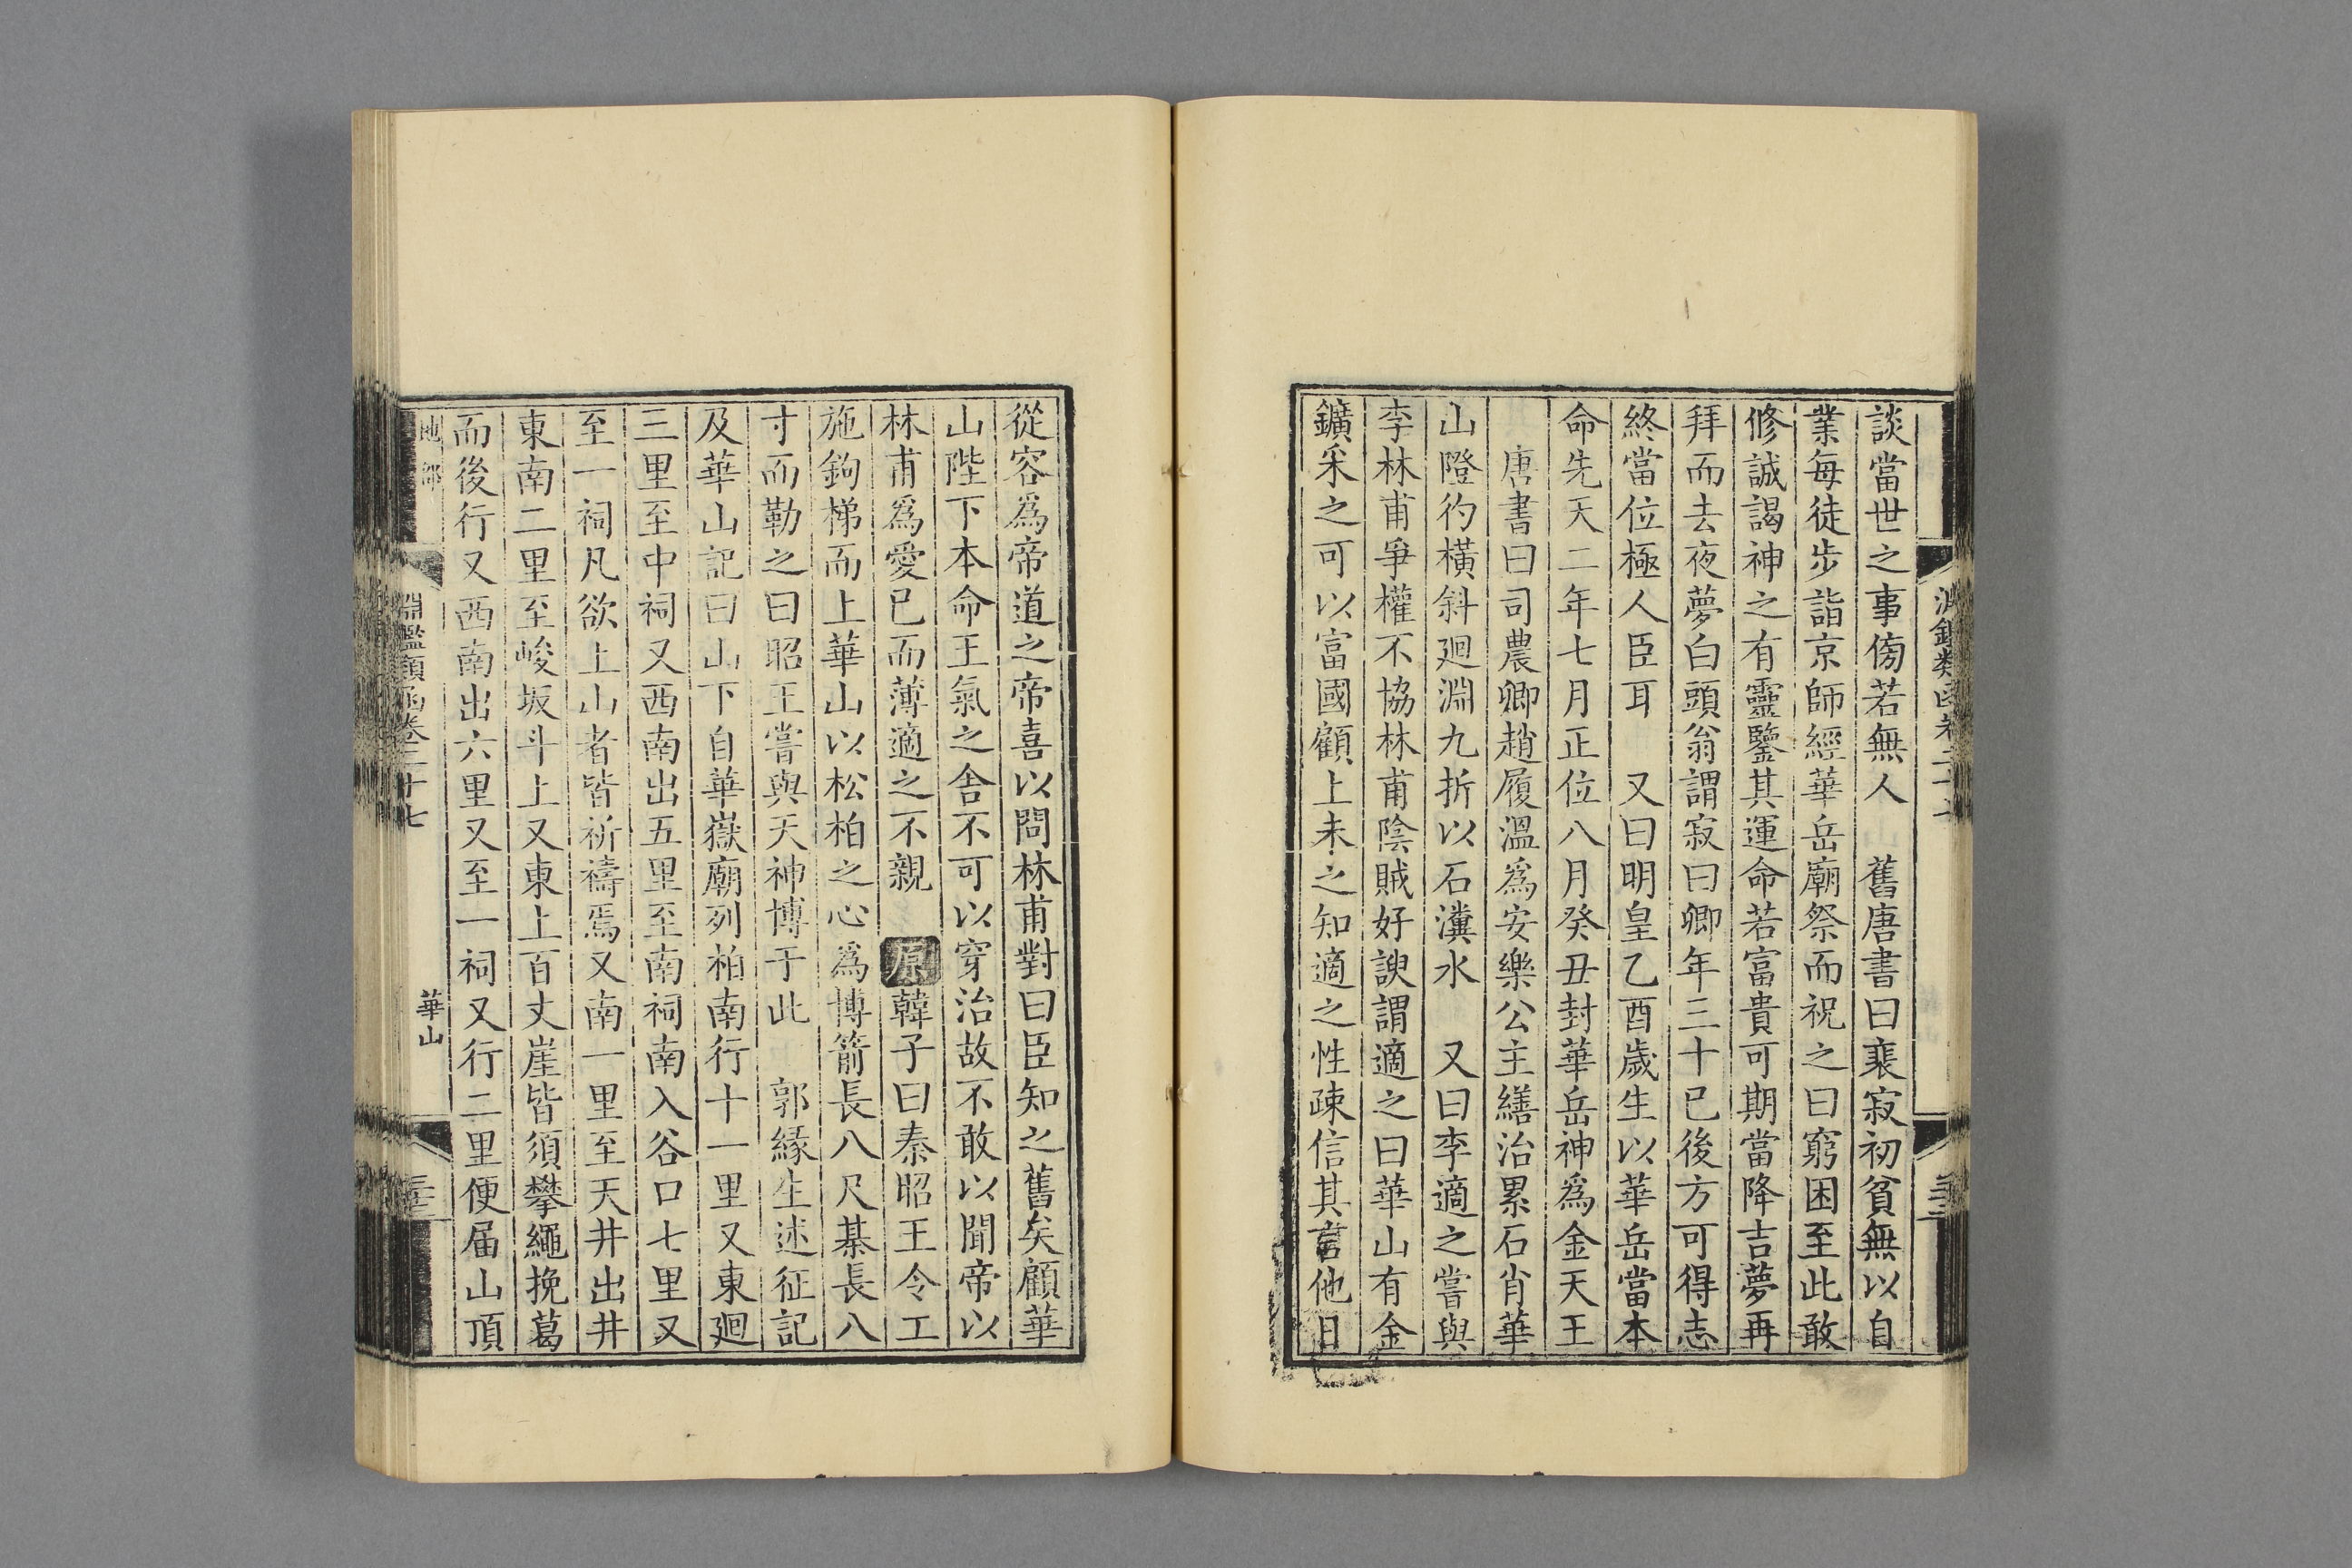 談當世之事傍若無人　舊唐書曰裴寂初貧無以自
業每徒步詣京師經華岳廟祭而祝之曰窮困至此敢
修誠謁神之有靈鑒其運命若富貴可期當降吉夢再
拜而去夜夢白頭翁謂寂曰卿年三十已後方可得志
終當位極人臣耳　又曰明皇乙酉歲生以華岳當本
命先天二年七月正位八月癸丑封華岳神為金天王
唐書曰司農卿趙履溫為安樂公主繕治累石肖華
山隥彴橫斜廻淵九折以石瀵水　又曰李適之嘗與
李林甫爭權不協林甫陰賊好諛謂適之曰華山有金
鑛采之可以富國顧上未之知適之性疎信其言他日
從容為帝道之帝喜以問林甫對曰臣知之舊矣顧華
山陛下本命王氣之舍不可以穿治故不敢以聞帝以
林甫為愛已而薄適之不親　原韓子曰秦昭王令工
施鉤梯而上華山以松柏之心為博箭長八尺棊長八
寸而勒之曰昭王嘗與天神博于此　郭緣生述征記
及華山記曰山下自華嶽廟列柏南行十一里又東廻
三里至中祠又西南出五里至南祠南入谷口七里又
至一祠凡欲上山者皆祈禱焉又南一里至天井出井
東南二里至峻坂斗上又東上百丈崖皆須攀繩挽葛
而後行又西南出六里又至一祠又行二里便届山頂
地部
淵鑑類函卷二十七
華山